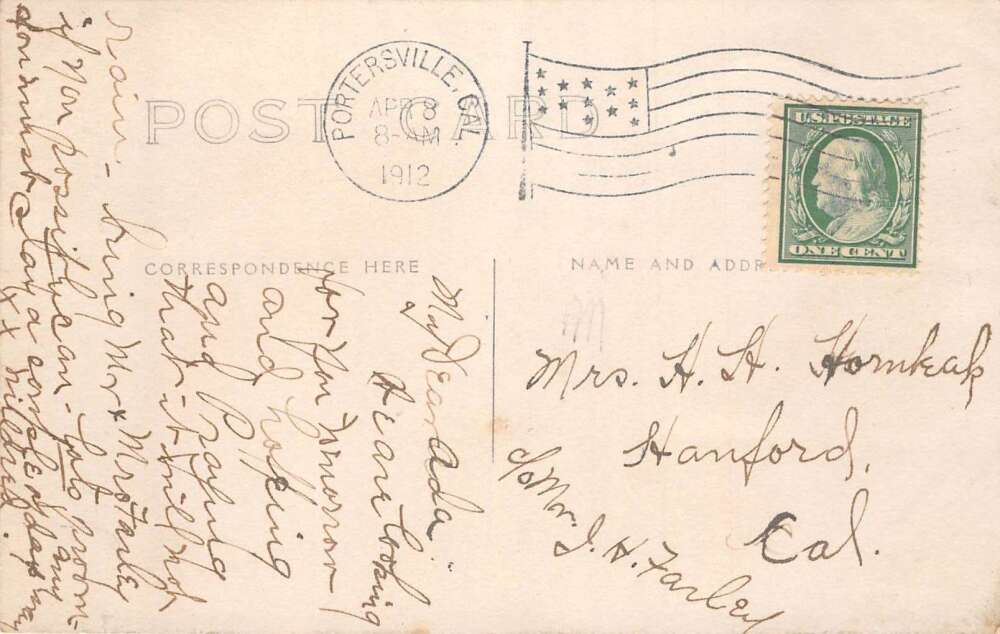 POST CARD
PORTERSVILLE, CAL.
APR 8
8-AM
1912
U.S. POSTAGE
ONE CENT
CORRESPONDENCE HERE
NAME AND ADDR
My Dear Ada"
We are looking
for you tomorrow
and hoping
and praying
that it will not
rain - bring Mr & Mrs Farley
if you possibly can - you
and must stay a couple of days any
way
XX Mildred.
Mrs. H. H. Hornbeak
Hanford,
Cal.
c/o Mr. J. H. Farley